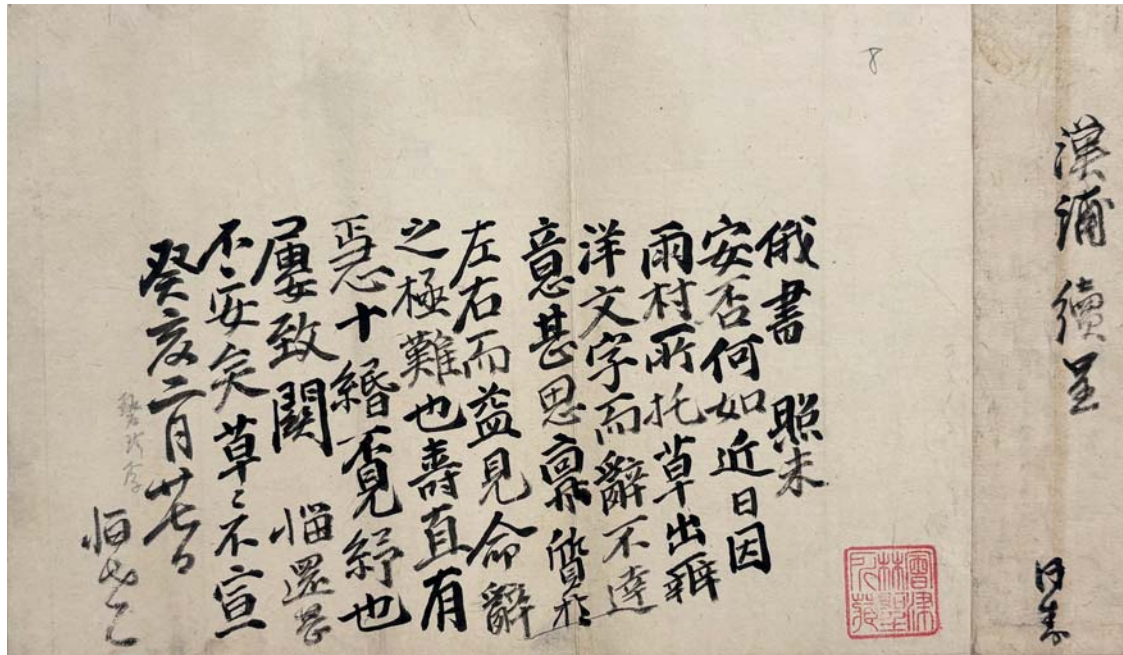 漢浦 續呈
俄書 照未
安否何如近日因
雨村所托草出辨
洋文字而辭不達
意甚思稟質於
左右而益見命辭
之極難也壽直有
十緡不見紓也
屢致關 惱還甚
不安矣草〻不宣
癸亥二月廿七日